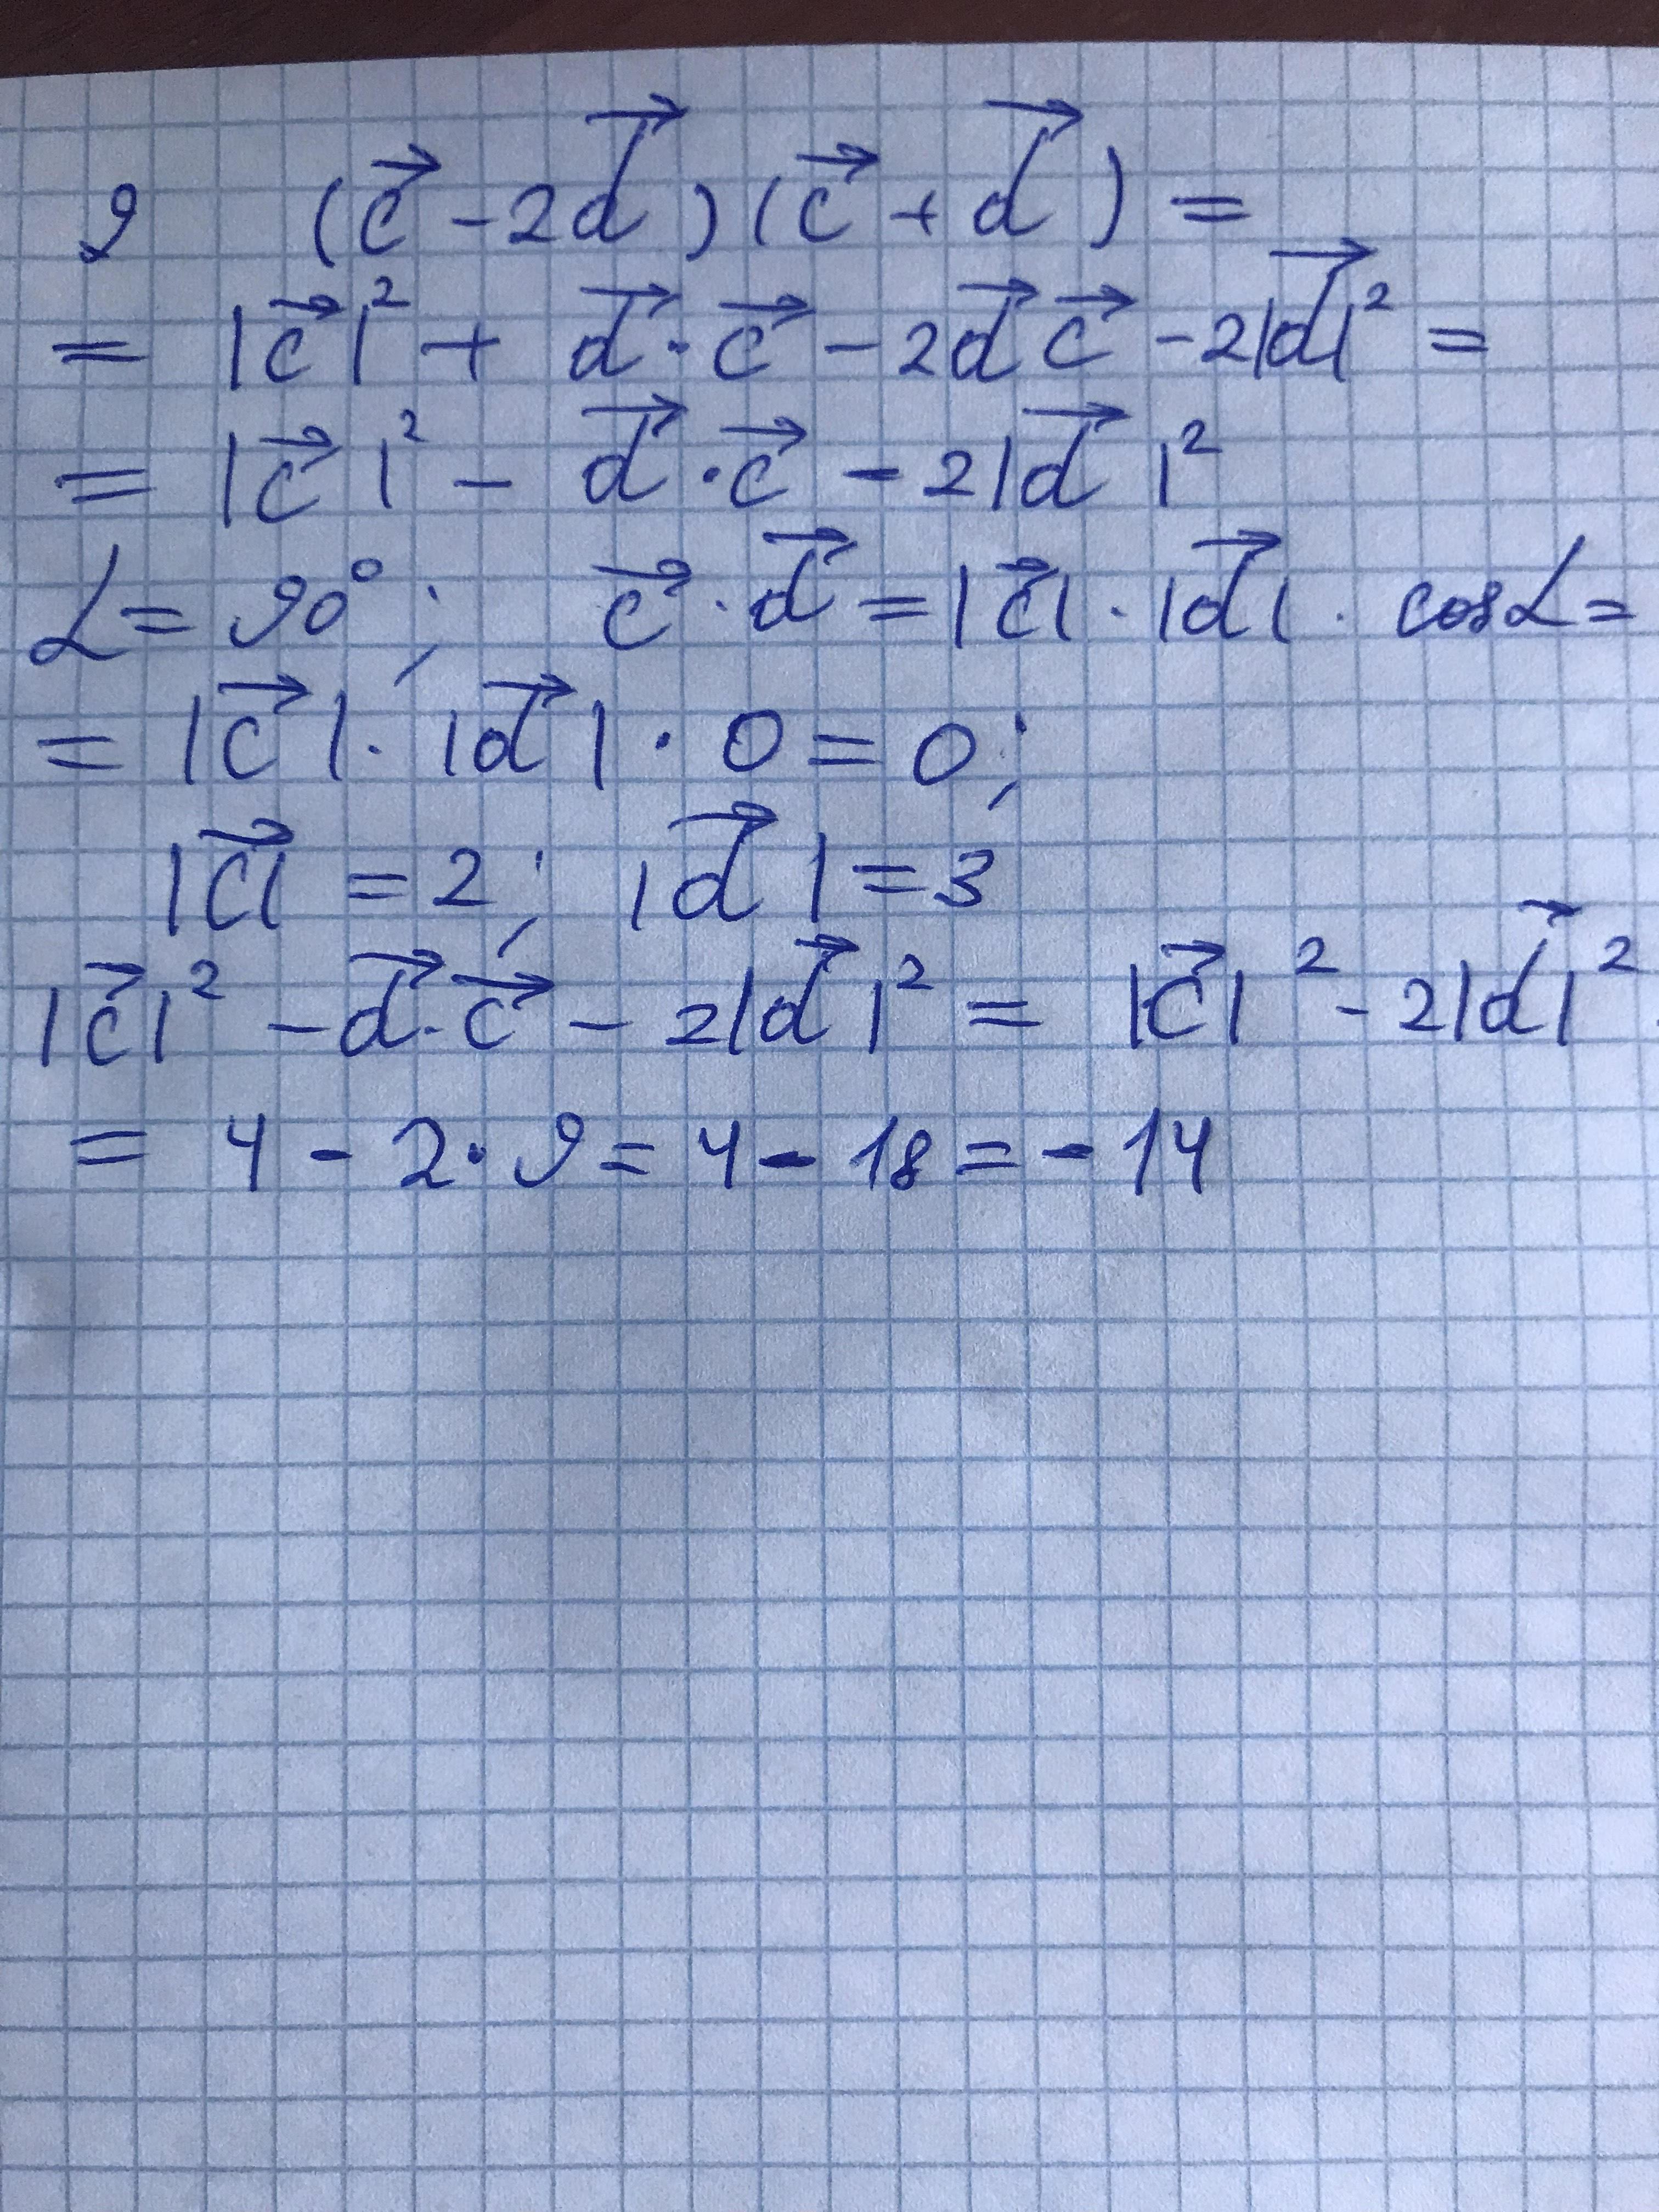 9 (c⃗ - 2d⃗)(c⃗ + d⃗) =
= |c⃗|² + d⃗·c⃗ - 2d⃗c⃗ - 2|d⃗|² =
= |c⃗|² - d⃗·c⃗ - 2|d⃗|²
α = 90°; c⃗·d⃗ = |c⃗|·|d⃗|·cosα =
= |c⃗|·|d⃗|·0 = 0;
|c⃗| = 2; |d⃗| = 3
|c⃗|² - d⃗·c⃗ - 2|d⃗|² = |c⃗|² - 2|d⃗|²
= 4 - 2·9 = 4 - 18 = -14